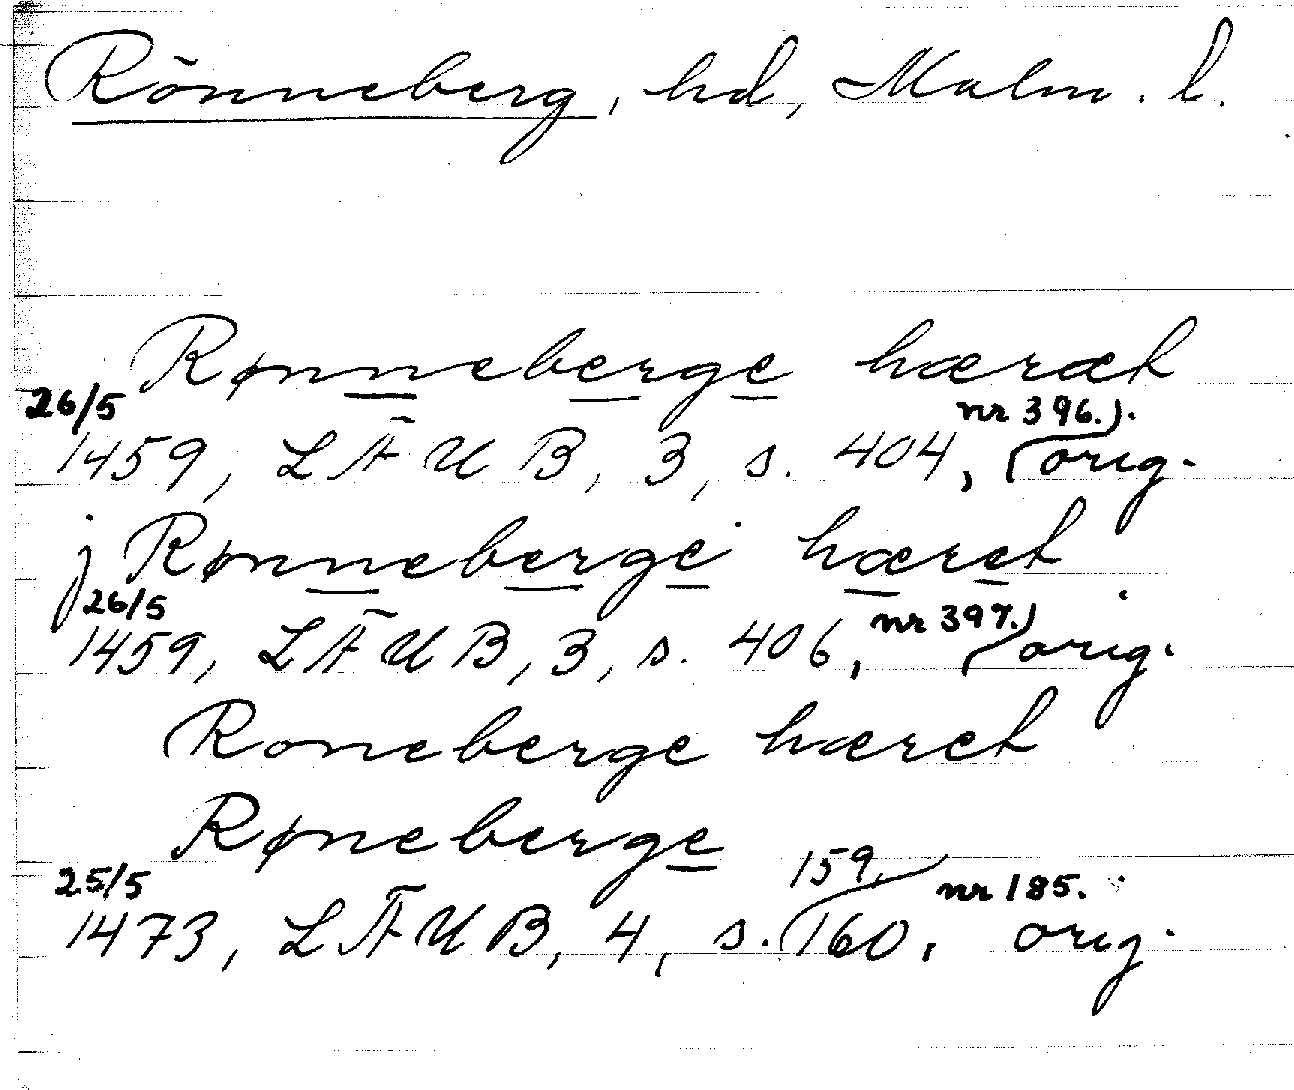 Rönneberg, hd, Malm. l.
Rønneberge hæræt
26/5 nr 396.).
1459, LÄUB, 3, s. 404, (orig.
j Rønneberge hæret
26/5 nr 397.)
1459, LÄUB, 3, s. 406, (orig.
Roneberge hæret
Røneberge
25/5 159, nr 185.
1473, LÄUB, 4, s. 160, orig.